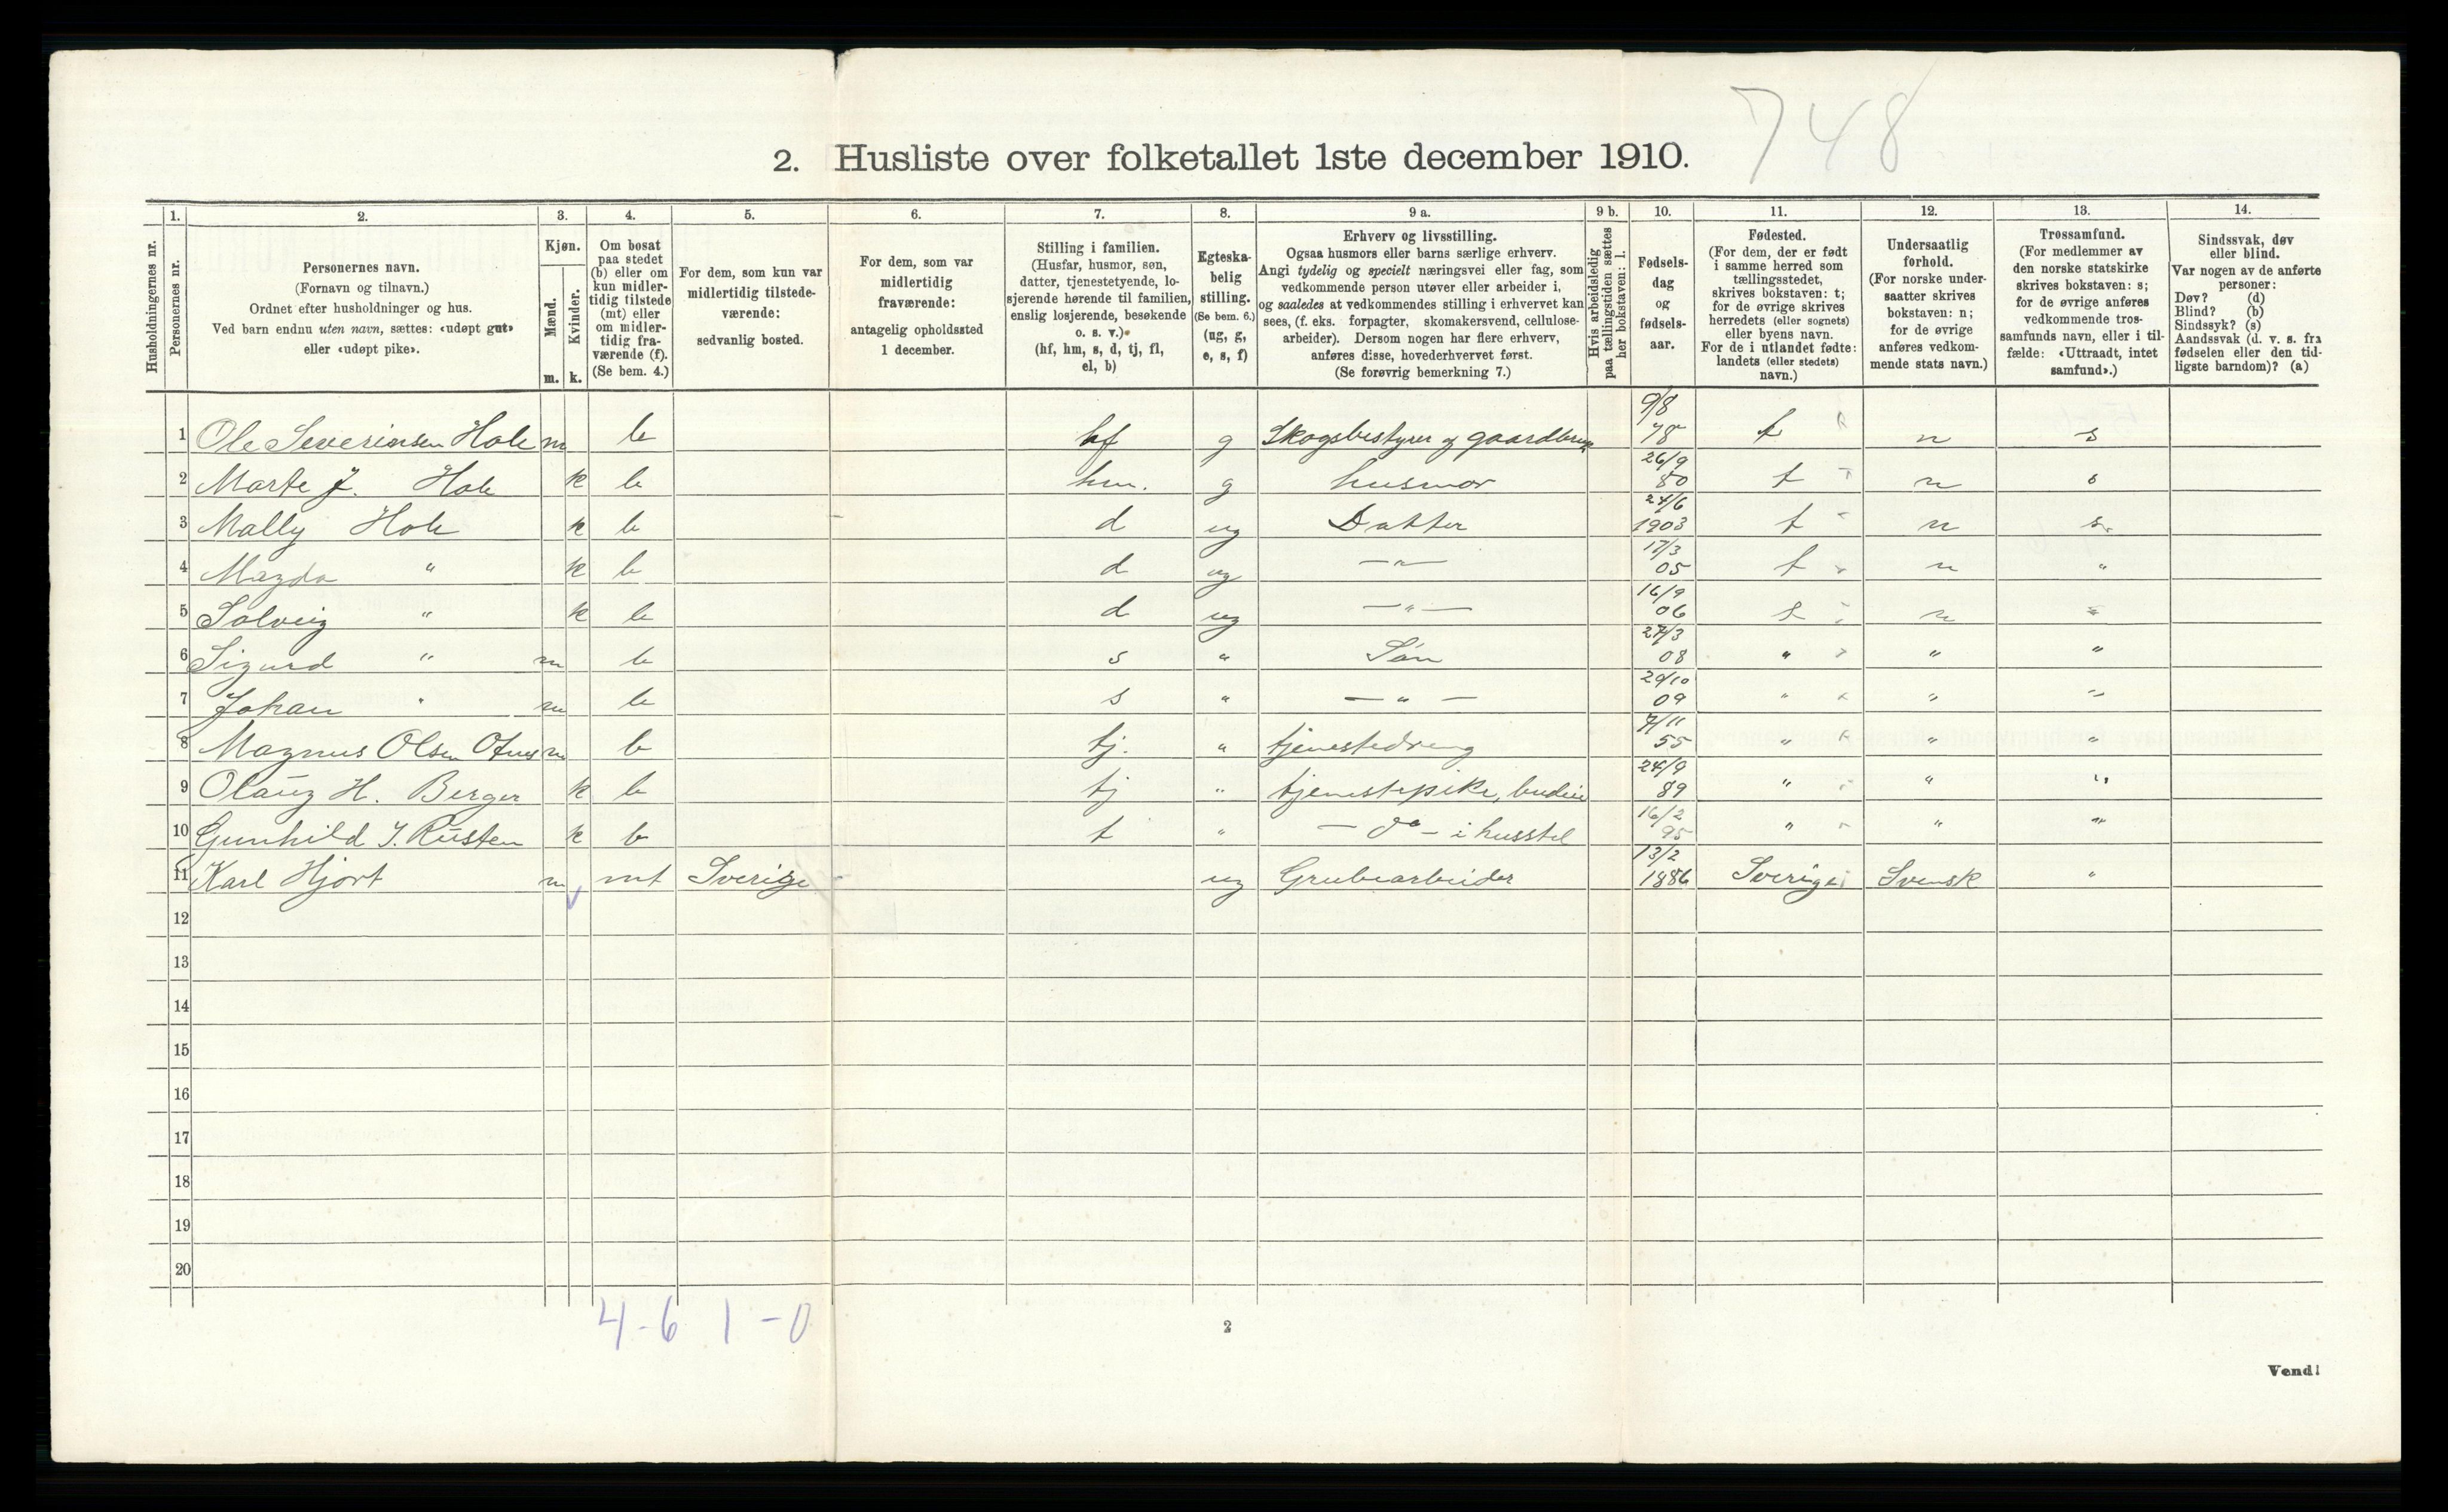 748
2. Husliste over folketallet 1ste december 1910.
Husholdningernes nr.
1. Personernes nr.
2. Personernes navn.
(Fornavn og tilnavn.)
Ordnet efter husholdninger og hus.
Ved barn endnu uten navn, sættes: «udøpt gut»
eller «udøpt pike».
3. Kjøn.
Mænd. m.
Kvinder. k.
4. Om bosat
paa stedet
(b) eller om
kun midler-
tidig tilstede
(mt) eller
om midler-
tidig fra-
værende (f).
(Se bem. 4.)
5. For dem, som kun var
midlertidig tilstede-
værende:
sedvanlig bosted.
6. For dem, som var
midlertidig
fraværende:
antagelig opholdssted
1 december.
7. Stilling i familien.
(Husfar, husmor, søn,
datter, tjenestetyende, lo-
sjerende hørende til familien,
enslig losjerende, besøkende
o. s. v.)
(hf, hm, s, d, tj, fl,
el, b)
8. Egteska-
belig
stilling.
(Se bem. 6.)
(ug, g,
e, s, f)
9 a. Erhverv og livsstilling.
Ogsaa husmors eller barns særlige erhverv.
Angi tydelig og specielt næringsvei eller fag, som
vedkommende person utøver eller arbeider i,
og saaledes at vedkommendes stilling i erhvervet kan
sees, (f. eks. forpagter, skomakersvend, cellulose-
arbeider). Dersom nogen har flere erhverv,
anføres disse, hovederhvervet først.
(Se forøvrig bemerkning 7.)
9 b. Hvis arbeidsledig
paa tællingstiden sættes
her bokstaven: l.
10. Fødsels-
dag
og
fødsels-
aar.
11. Fødested.
(For dem, der er født
i samme herred som
tællingsstedet,
skrives bokstaven: t;
for de øvrige skrives
herredets (eller sognets)
eller byens navn.
For de i utlandet fødte:
landets (eller stedets)
navn.)
12. Undersaatlig
forhold.
(For norske under-
saatter skrives
bokstaven: n;
for de øvrige
anføres vedkom-
mende stats navn.)
13. Trossamfund.
(For medlemmer av
den norske statskirke
skrives bokstaven: s;
for de øvrige anføres
vedkommende tros-
samfunds navn, eller i til-
fælde: «Uttraadt, intet
samfund».)
14. Sindssvak, døv
eller blind.
Var nogen av de anførte
personer:
Døv? (d)
Blind? (b)
Sindssyk? (s)
Aandssvak (d. v. s. fra
fødselen eller den tid-
ligste barndom)? (a)
1 Ole Severinsen Hole m b hf g Skogsbestyrer og gaardbruk 9/8 78 t n s
2 Marte J. Hole k b hm. g husmor 26/9 80 t n s
3 Mally Hole k b d ug Datter 24/6 1903 t n s
4 Magda " k b d ug —"— 17/3 05 t n "
5 Solveig " k b d ug —"— 16/9 06 t n "
6 Sigurd " m b s " Søn 27/3 08 " " "
7 Johan " m b s " —"— 29/10 09 " " "
8 Magnus Olsen m b tj. " tjenestedreng 7/11 55 " " "
9 Olaug H. Berger k b tj " tjenestepike, budeie 24/9 89 " " "
10 Gunhild J. Rusten k b t " — do — i husstel 16/2 95 " " "
11 Karl Hjort m mt Sverige ug Grubearbeider 13/2 1886 Sverige Svensk "
12
13
14
15
16
17
18
19
20
4-6 1-0
2
Vend!